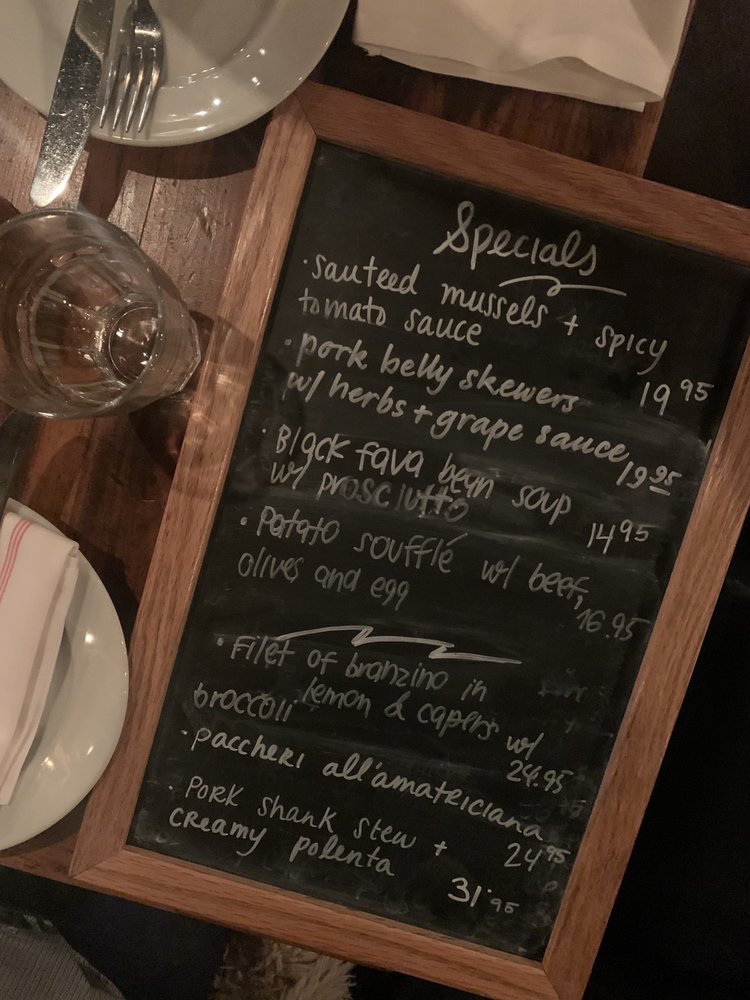 Specials
· sauteed mussels + spicy
tomato sauce 19 95
· pork belly skewers
w/ herbs + grape sauce 19 95
· Black fava bean soup
w/ prosciutto 14 95
· Potato soufflé w/ beef,
olives and egg 16.95
· Filet of branzino in
lemon & capers w/
broccoli 24.95
· paccheri all'amatriciana
24 95
· Pork shank stew +
creamy polenta
31.95